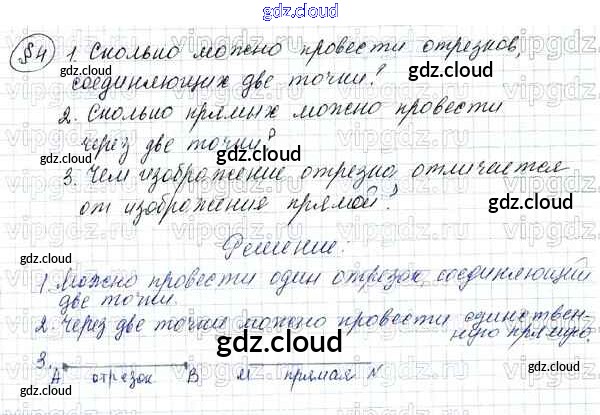 gdz.cloud
§4 1. Сколько можно провести отрезков,
соединяющих две точки?
2. Сколько прямых можно провести
через две точки?
3. Чем изображение отрезка отличается
от изображения прямой?
Решение:
1. Можно провести один отрезок, соединяющий
две точки.
2. Через две точки можно провести единствен-
ную прямую.
3.
A отрезок B M прямая N
gdz.cloud
gdz.cloud
gdz.cloud
gdz.cloud
gdz.cloud
gdz.cloud
gdz.cloud
gdz.cloud
vipgdz.ru